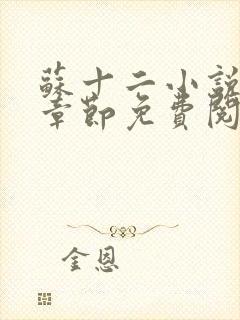 蘇十二小說
章節免費閱
金恩